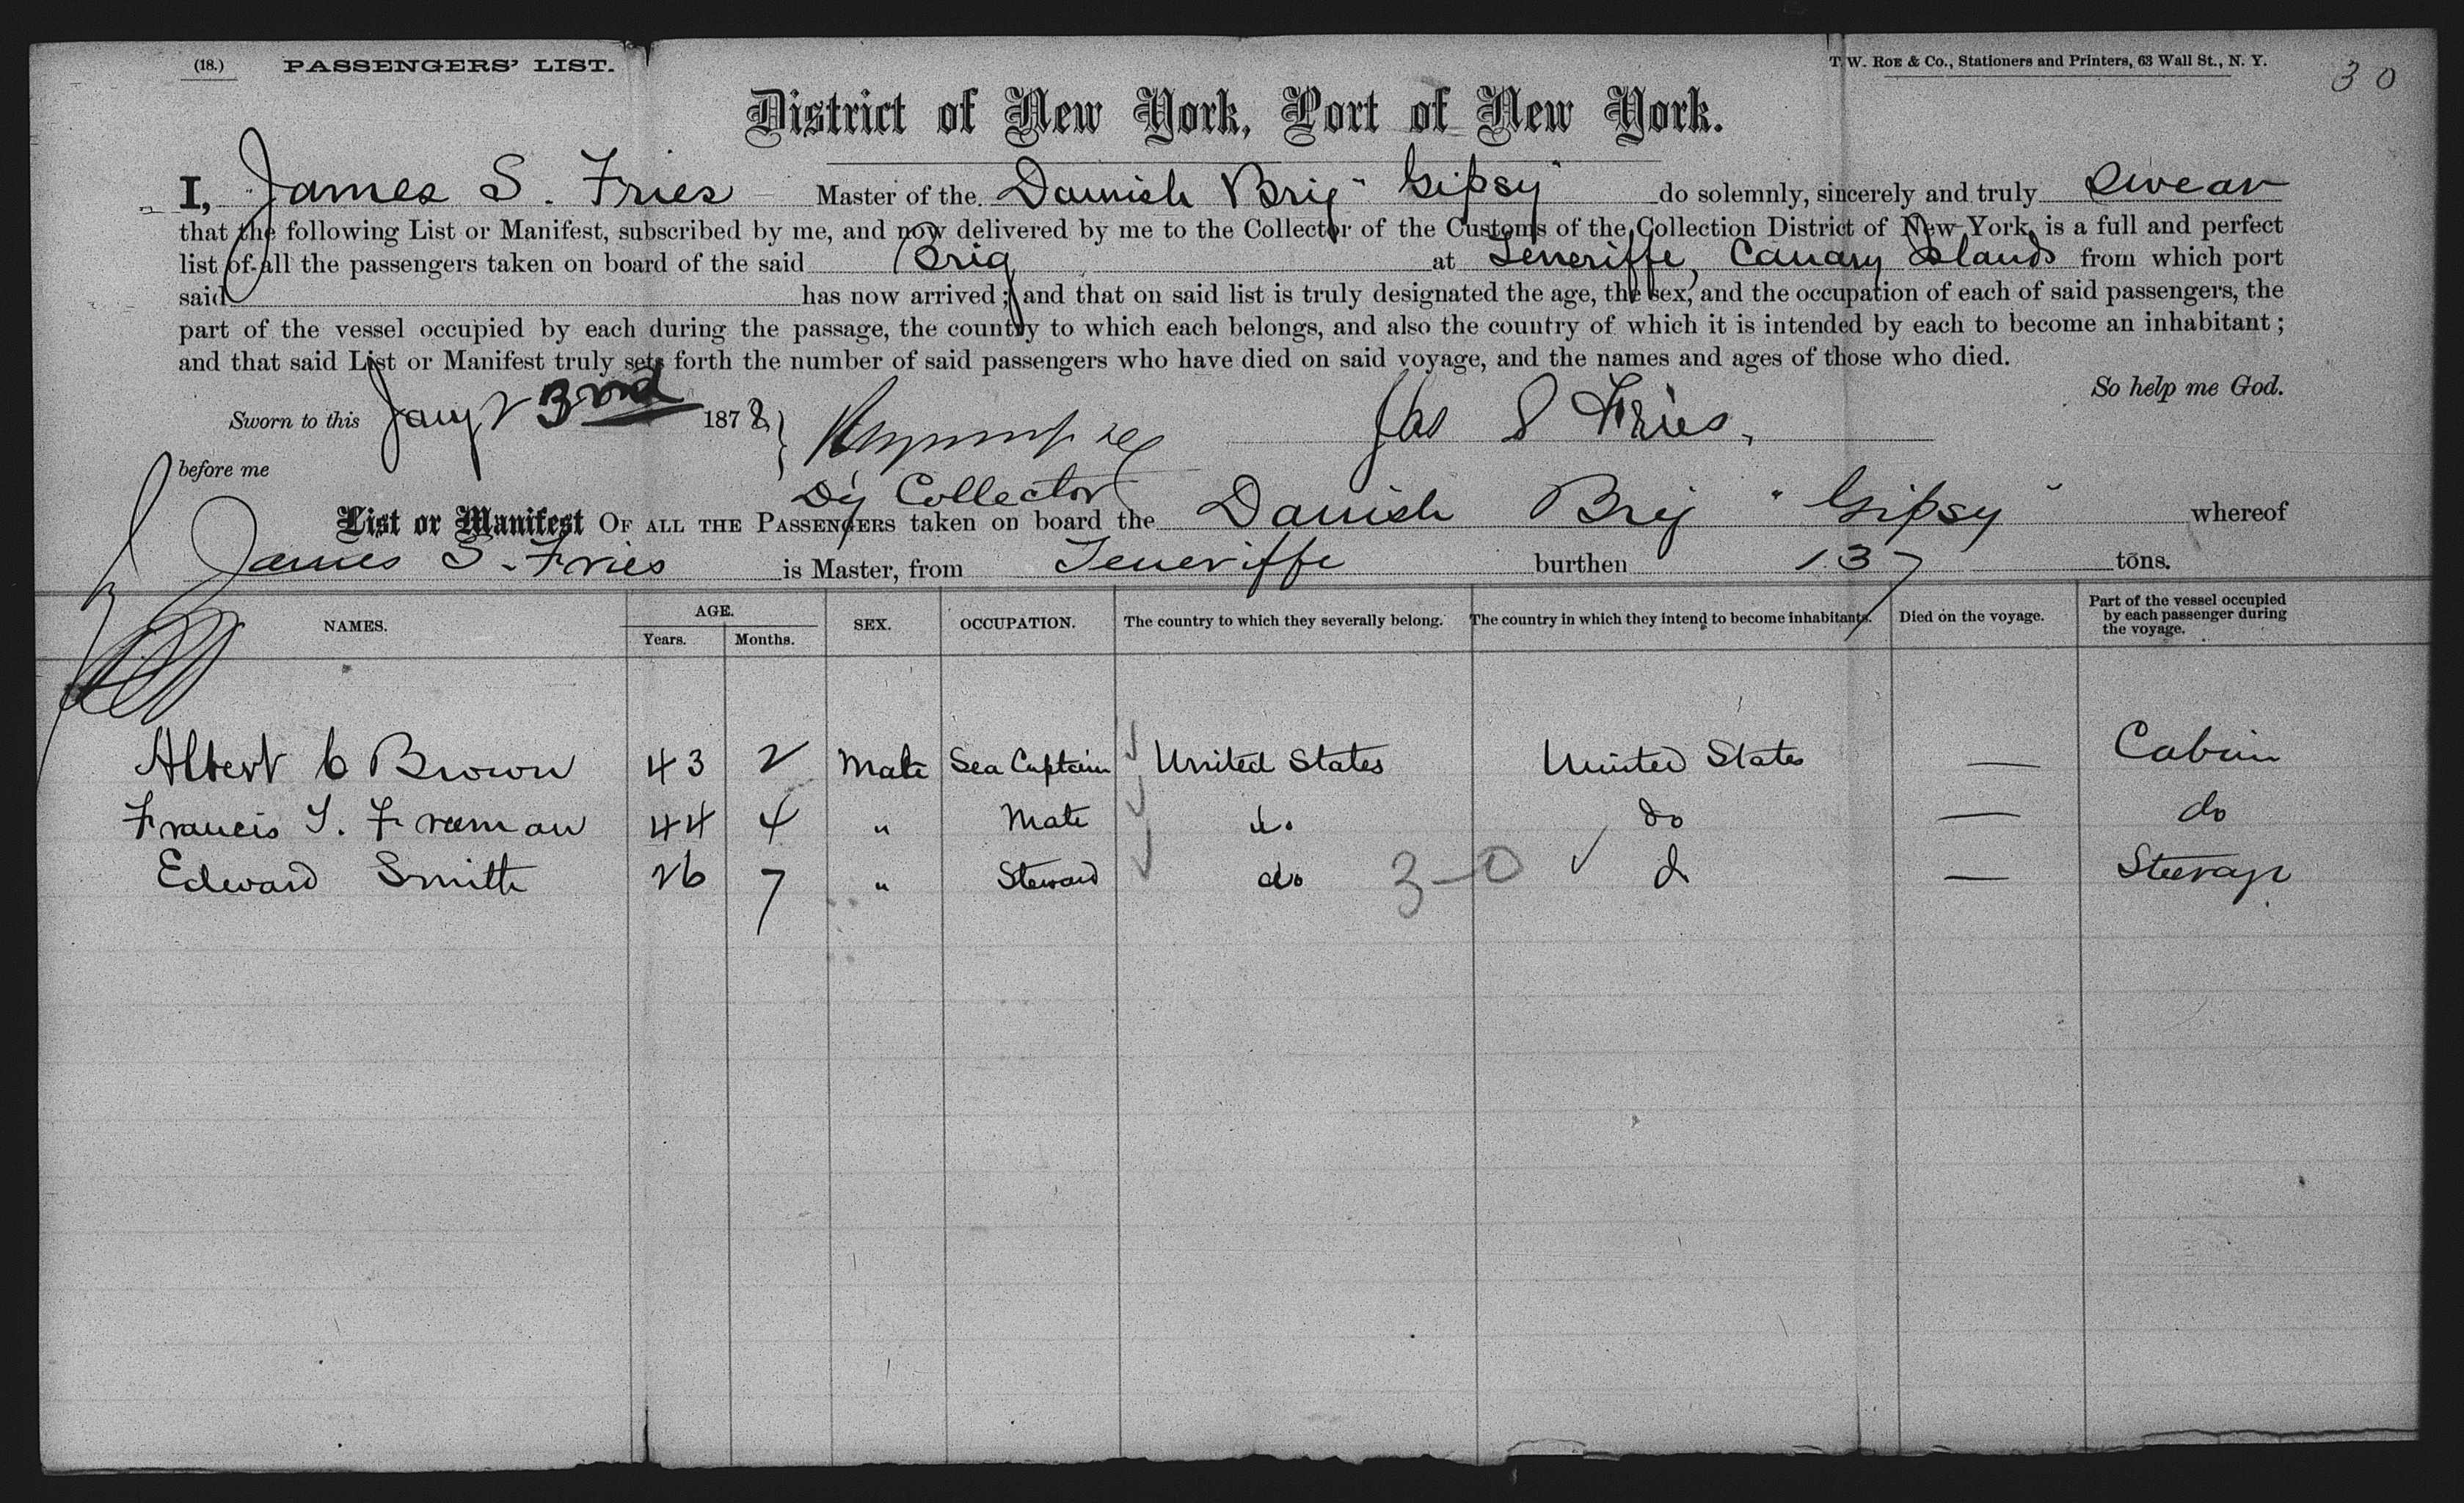 (18.) PASSENGERS' LIST. T. W. ROE & Co., Stationers and Printers, 63 Wall St., N. Y. 30
District of New York, Port of New York.
I, James S. Fries Master of the Danish Brig "Gipsy" do solemnly, sincerely and truly swear
that the following List or Manifest, subscribed by me, and now delivered by me to the Collector of the Customs of the Collection District of New York, is a full and perfect
list of all the passengers taken on board of the said Brig at Teneriffe, Canary Islands from which port
said has now arrived; and that on said list is truly designated the age, the sex, and the occupation of each of said passengers, the
part of the vessel occupied by each during the passage, the country to which each belongs, and also the country of which it is intended by each to become an inhabitant;
and that said List or Manifest truly sets forth the number of said passengers who have died on said voyage, and the names and ages of those who died.
So help me God.
Sworn to this Jany 3rd 1878 Jas S Fries,
before me
Dy Collector
List or Manifest OF ALL THE PASSENGERS taken on board the Danish Brig "Gipsy" whereof
James S. Fries is Master, from Teneriffe burthen 137 tons.
NAMES. AGE. Years. Months. SEX. OCCUPATION. The country to which they severally belong. The country in which they intend to become inhabitants. Died on the voyage. Part of the vessel occupied by each passenger during the voyage.
Albert C Brown 43 2 Male Sea Captain United States United States — Cabin
Francis T. Freeman 44 4 " Mate do do — do
Edward Smith 26 7 " Steward do 3-0 do — Steerage